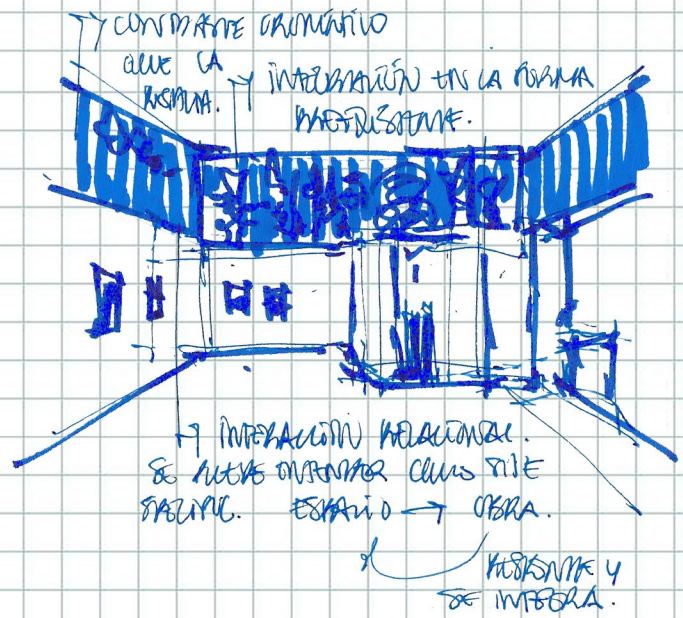 CONTRASTE CROMÁTICO
QUE LA
RESALTA.
INTEGRACIÓN EN LA FORMA
PREEXISTENTE.
INTERACCIÓN RELACIONAL.
SE PUEDE ENTENDER COMO SITE
SPECIFIC. ESPACIO → OBRA.
RESPONDE Y
SE INTEGRA.